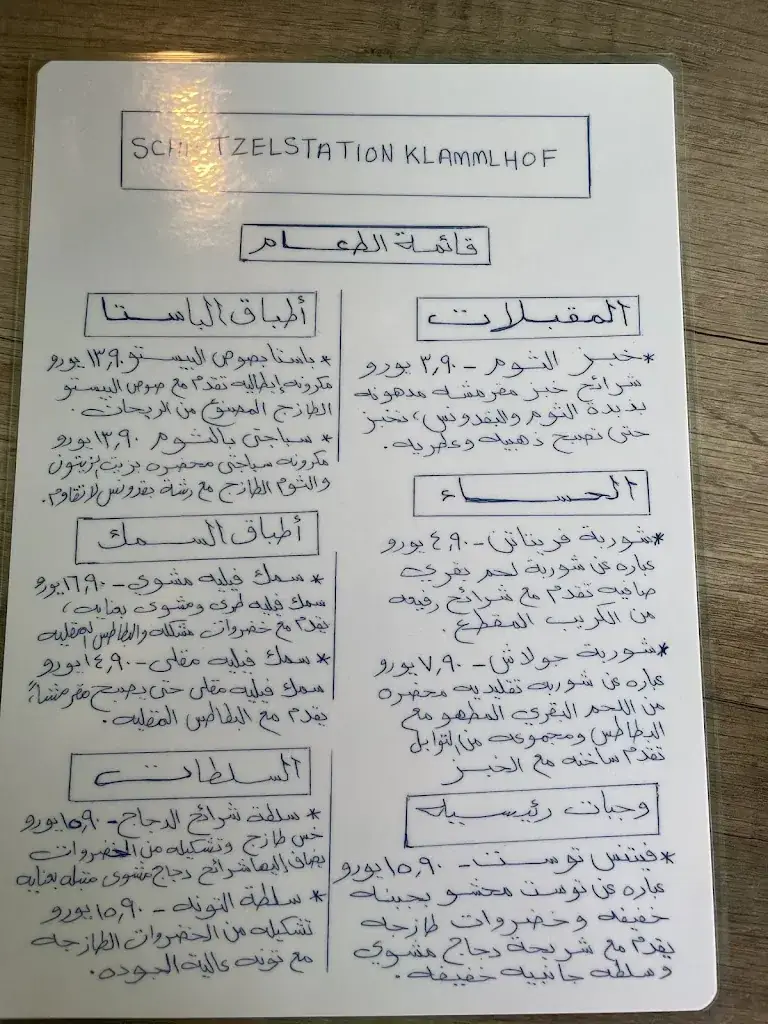 SCHNITZELSTATION KLAMMLHOF
قائمة الطعام
المقبلات
*خبز الثوم - ٣,٩٠ يورو
شرائح خبز مقرمشه مدهونه
بزبدة الثوم والبقدونس، تخبز
حتى تصبح ذهبيه وعطريه.
الحساء
*شوربة فريتاتن - ٤,٩٠ يورو
عباره عن شوربة لحم بقري
صافيه تقدم مع شرائح رفيعه
من الكريب المقطع.
*شوربة جولاش - ٧,٩٠ يورو
عباره عن شوربه تقليديه محضره
من اللحم البقري المطهو مع
البطاطس ومجموعه من التوابل
تقدم ساخنه مع الخبز
وجبات رئيسيه
*فيتنس توست - ١٥,٩٠ يورو
عباره عن توست محشو بجبنه
خفيفه وخضروات طازجه
يقدم مع شريحة دجاج مشوي
وسلطه جانبيه خفيفه.
أطباق الباستا
* باستا بصوص البيستو ١٣,٩٠ يورو
مكرونه إيطاليه تقدم مع صوص البيستو
الطازج المصنوع من الريحان.
* سباجتي بالثوم ١٣,٩٠ يورو
مكرونه سباجتي محضره بزيت الزيتون
والثوم الطازج مع رشة بقدونس لاتقاوم.
أطباق السمك
* سمك فيليه مشوي - ١٦,٩٠ يورو
سمك فيليه طري ومشوى بعنايه،
يقدم مع خضروات مشكله والبطاطس المقليه
* سمك فيليه مقلى - ١٤,٩٠ يورو
سمك فيليه مقلى حتى يصبح مقرمشاً،
يقدم مع البطاطس المقليه.
السلطات
* سلطة شرائح الدجاج - ١٥,٩٠ يورو
خس طازج وتشكيله من الخضروات
يضاف اليها شرائح دجاج مشوى متبله بعنايه
* سلطة التونه - ١٥,٩٠ يورو
تشكيله من الخضروات الطازجه
مع تونه عالية الجوده.